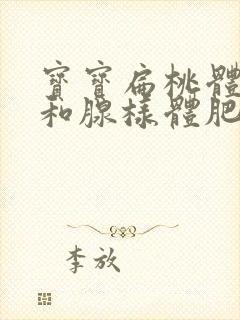 寶寶扁桃體
和腺樣體肥
李放